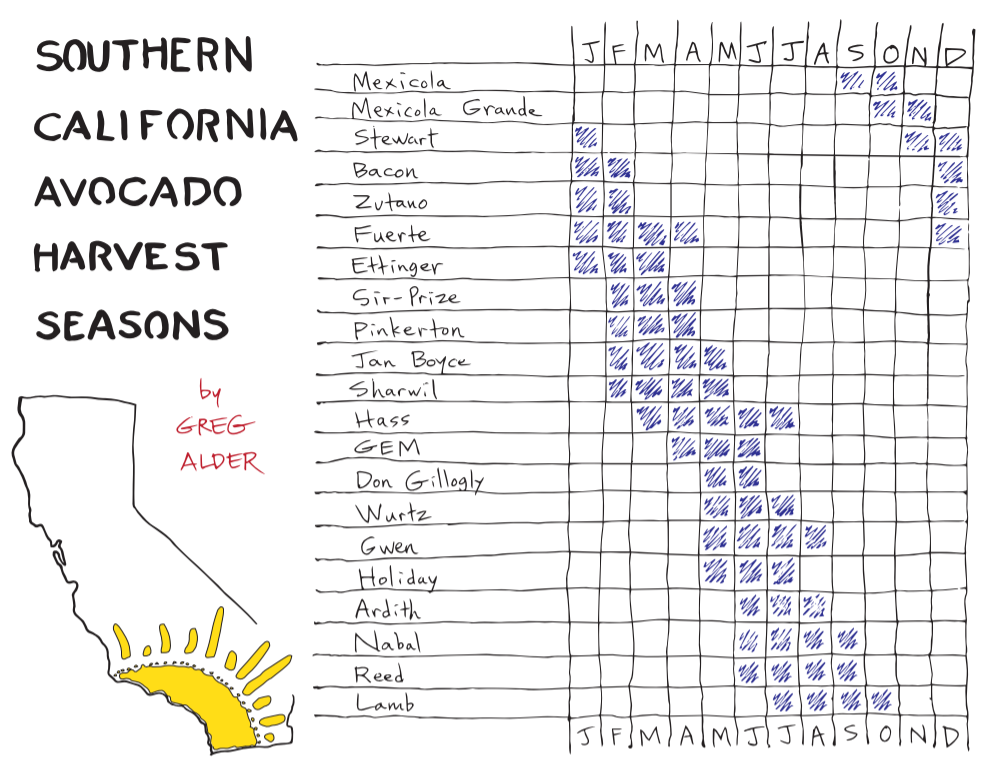 SOUTHERN
CALIFORNIA
AVOCADO
HARVEST
SEASONS
by
GREG
ALDER
J F M A M J J A S O N D
Mexicola
Mexicola Grande
Stewart
Bacon
Zutano
Fuerte
Ettinger
Sir-Prize
Pinkerton
Jan Boyce
Sharwil
Hass
GEM
Don Gillogly
Wurtz
Gwen
Holiday
Ardith
Nabal
Reed
Lamb
J F M A M J J A S O N D